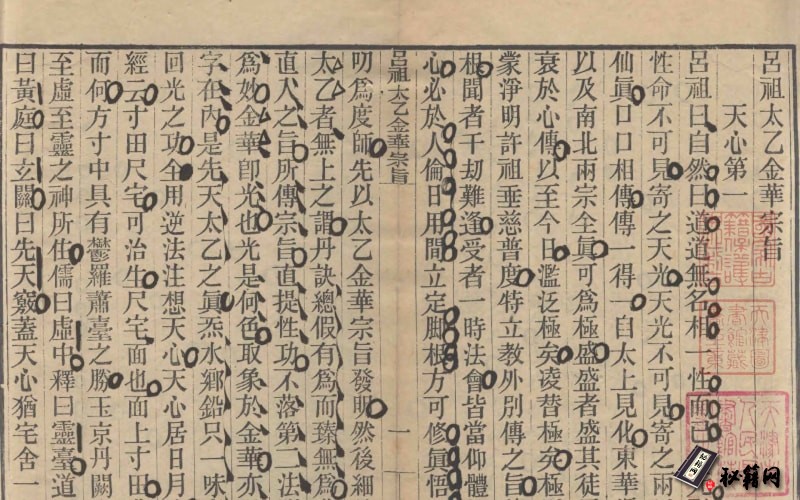 呂祖太乙金華宗旨
天心第一
呂祖曰自然曰道道無名相一性而已
性命不可見寄之天光天光不可見寄之兩
仙眞口口相傳傳一得一自太上見化東華
以及南北兩宗全眞可爲極盛盛者盛其徒
衰於心傳以至今日濫泛極矣凌替極矣
蒙淨明許祖垂慈普度特立教外別傳之旨
根聞者千劫難逢受者一時法會皆當仰體
心必於人倫日用間立定脚根方可修眞悟
呂祖太乙金華宗旨
一
叨爲度師先以太乙金華宗旨發明然後細
太乙者無上之謂丹訣總假有爲而臻無爲
直入之旨所傳宗旨直提性功不落第二法
爲妙金華卽光也光是何色取象於金華亦
字在內是先天太乙之眞炁水鄉鉛只一味
回光之功全用逆法注想天心天心居日月
經云寸田尺宅可治生尺宅面也面上寸田
而何方寸中具有鬱羅蕭臺之勝玉京丹闕
至虛至靈之神所住儒曰虛中釋曰靈臺道
曰黃庭曰玄關曰先天竅蓋天心猶宅舍一
秘籍网